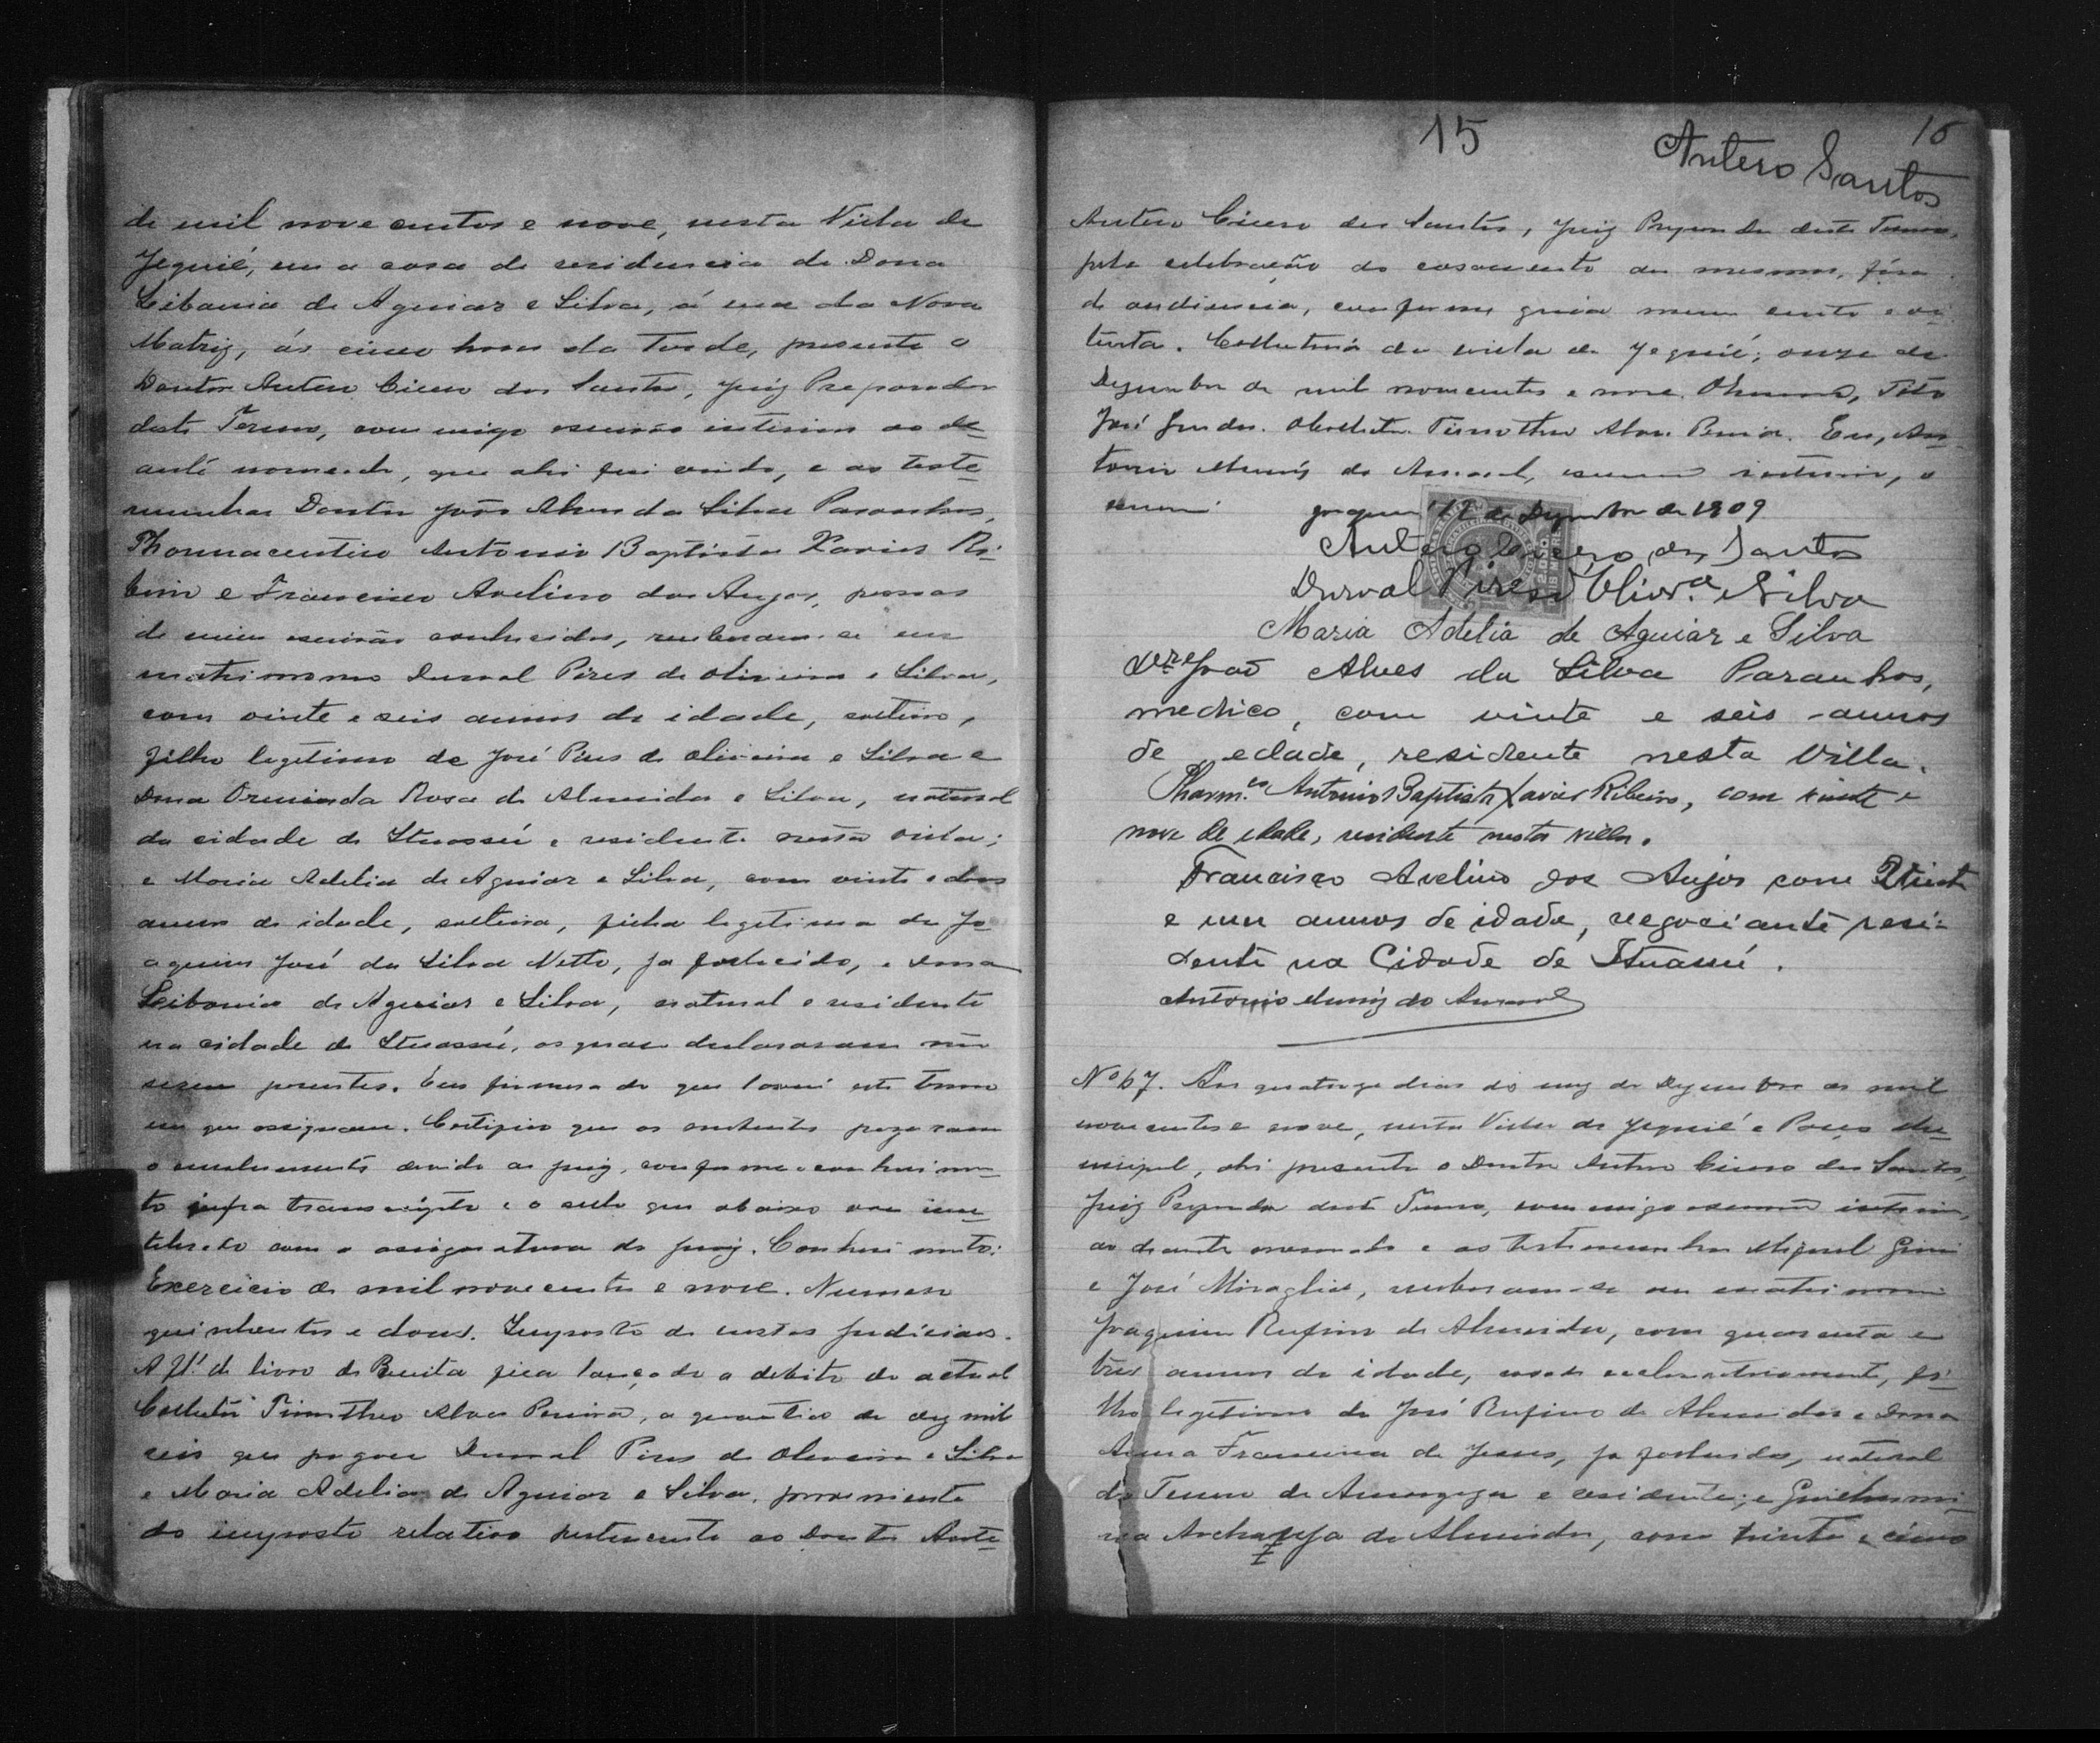 de mil nove centos e nove, nesta Villa de
Jequié, em a casa de residencia de Dona
Leibania de Aguiar e Silva, á rua da Nova
Matriz, ás cinco horas da tarde, presente o
Doutor Antero Cicero dos Santos, Juiz Preparador
deste Termo, commigo escrivão interino ao de-
ante nomeado, que ahi fui vindo, e as teste-
munhas Doutor João Alves da Silva Paranhos,
Pharmaceutico Antonio Baptista Xavier Ri-
beiro e Francisco Avelino dos Anjos, pessoas
de mim escrivão conhecidas, receberam-se em
matrimonio Durval Pires de Oliveira e Silva,
com vinte e seis annos de idade, solteiro,
filho legitimo de José Pires de Oliveira e Silva e
Dona Orminda Rosa de Almeida e Silva, natural
da cidade de Ituassú e residente nesta villa;
e Maria Adelia de Aguiar e Silva, com vinte e dous
annos de idade, solteira, filha legitima de Jo-
aquim José da Silva Netto, ja fallecido, e Dona
Leibania de Aguiar e Silva, natural e residente
na cidade de Ituassú, os quaes declararam não
serem parentes. Em firmesa do que lavrei este termo
em que assignam. Certifico que os contrahentes pagaram
o emolumento devido ao juiz, conforme o conhecimen-
to infra transcripto e o sello que abaixo vae inu-
telisado com a assignatura do juiz. Conhecimento:
Exercicio de mil nove centos e nove. Numero
quinhentos e dous. Imposto de custas judiciaes.
A fl. do livro de Receita fica lançado a debito do actual
Collector Timotheo Alves Pereira, a quantia de dez mil
reis que pagou Durval Pires de Oliveira e Silva
e Maria Adelia de Aguiar e Silva, proveniente
do imposto relativo pertencente ao Doutor Ante-
15
16
Antero Santos
Antero Cicero dos Santos, Juiz Preparador deste Termo,
pela celebração do casamento dos mesmos, fóra
de audiencia, conforme guia numero cento e oi-
tenta. Collectoria da villa de Jequié, onze de
Dezembro de mil novecentos e nove. O Tito
José O Collector Timotheo Alves Pereira. Eu, An-
tonio Muniz do Amaral, escrivão interino, o
escrevi.
Jequié 12 de Dezembro de 1909
Antero Cicero dos Santos
Durval Pires d' Olivra e Silva
Maria Adelia de Aguiar e Silva
Dr João Alves da Silva Paranhos,
medico, com vinte e seis annos
de edade, residente nesta Villa.
Pharmco Antonio Baptista Xavier Ribeiro, com vinte e
nove de edade, residente nesta villa.
Francisco Avelino dos Anjos com trinta
e um annos de idade, negociante resi-
dente na Cidade de Ituassú.
Antonio Muniz do Amaral
No 67. Aos quatorze dias do mez de Dezembro de mil
nove centos e nove, nesta Villa de Jequié e Paço Mu-
nicipal, ahi presente o Doutor Antero Cicero dos Santos,
Juiz Preparador deste Termo, commigo escrivão interino,
ao deante nomeado e as testemunhas Miguel Grisi
e José Miraglia, receberam-se em matrimonio
Joaquim Rufino de Almeida, com quarenta e
tres annos de idade, casado ecclesiasticamente, fi-
lho legitimo de José Rufino de Almeida e Dona
Anna Francisca de Jesus, ja fallecidos, natural
do Termo de Amargosa e residente; e Guilhermi-
na Archanja de Almeida, com trinta e cinco